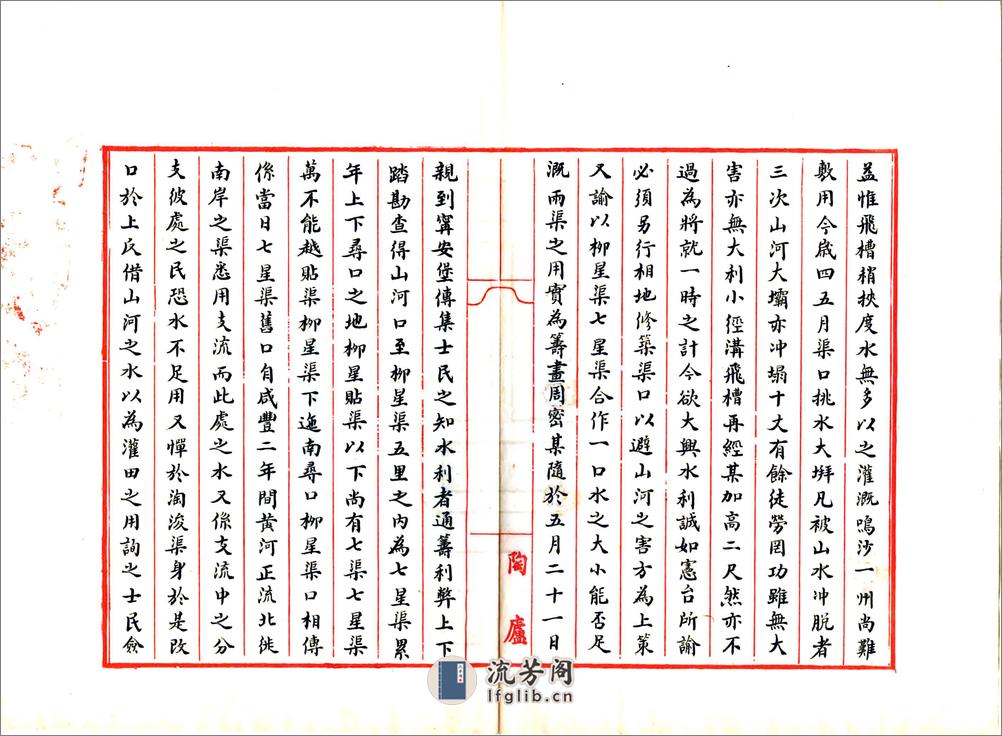 益惟飛槽稍挾度水無多以之灌溉鳴沙一州尚難
敷用今歲四五月渠口挑水大垪凡被山水冲脫者
三次山河大壩亦冲塌十丈有餘徒勞罔功雖無大
害亦無大利小徑溝飛槽再經某加高二尺然亦不
過為將就一時之計今欲大興水利誠如憲台所諭
必須另行相地修築渠口以避山河之害方為上策
又諭以柳星渠七星渠合作一口水之大小能否足
溉兩渠之用實為籌畫周密某隨於五月二十一日
陶廬
親到寗安堡傳集士民之知水利者通籌利弊上下
踏勘查得山河口至柳星渠五里之內為七星渠累
年上下尋口之地柳星貼渠以下尚有七渠七星渠
萬不能越貼渠柳星渠下迤南尋口柳星渠口相傳
係當日七星渠舊口自咸豐二年間黄河正流北徙
南岸之渠悉用支流而此處之水又係支流中之分
支彼處之民恐水不足用又憚於淘浚渠身於是改
口於上民借山河之水以為灌田之用詢之士民僉
流芳阁
lfglib.cn